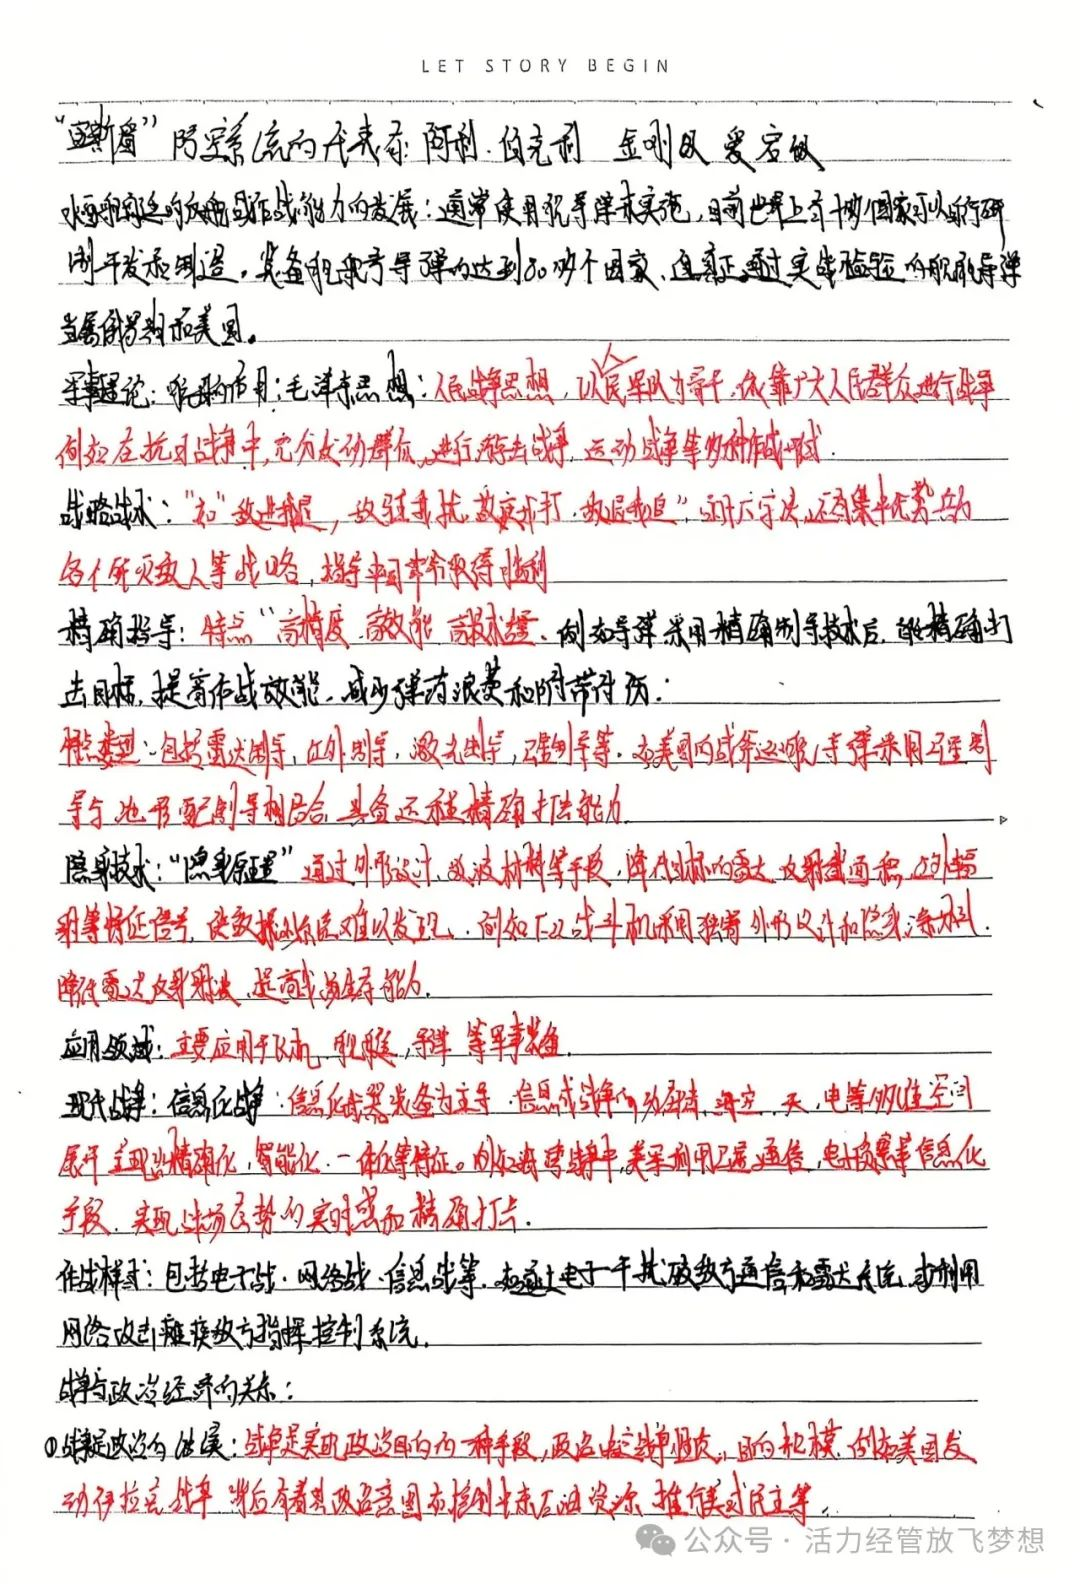 LET STORY BEGIN
"宙斯盾"防空系统的代表有：阿利·伯克利 金刚级 爱宕级
水面舰艇的反舰作战能力的发展：通常使用舰导弹来实施，目前世界上有十多个国家可以自行研
制开发和制造。装备舰舰导弹的达到80多个国家，真正通过实战检验的舰舰导弹
当属俄罗斯和美国。
军事理论：的作用：毛泽东思想：人民战争思想，以人民军队为骨干，依靠广大人民群众进行战争
例如在抗日战争中，充分发动群众，进行游击战争，运动战争等多种作战形式．
战略战术："敌进我退，敌驻我扰，敌疲我打，敌退我追"的十六字诀，还有集中优势兵力
各个歼灭敌人等战略，指导中国革命取得胜利
精确指导：特点"高精度 高效能 高技术．例如导弹采用精确制导技术后，能精确打
击目标，提高作战效能，减少弹药浪费和附带伤伤：
特点类型：包括雷达制导，红外制导，激光制导，卫星制导等．如美国的战斧巡航导弹采用卫星制
导与地形匹配制导相结合，具备远程精确打击能力．
隐身技术："隐身原理"通过外形设计，吸波材料等手段，降低目标的雷达反射截面积，红外辐
射等特征信号，使敌探测系统难以发现．例如F-22战斗机采用独特外形设计和隐身涂料，
降低雷达反射，提高战场生存能力．
应用领域：主要应用于飞机，舰艇，导弹等军事装备．
现代战争：信息化战争：信息化武器装备为主导，信息战争的，海空，天，电等多维空间
展开 呈现出精确化，智能化．一体化等特征。例如海湾战争中，美军利用卫星通信，电子侦察等信息化
手段，实现战场态势的实时感知和精确打击．
作战样式：包括电子战·网络战·信息战等．如通过电子干扰破敌方通信和雷达系统，或利用
网络攻击瘫痪敌方指挥控制系统．
战争与政治经济的关系：
①战争是政治的延展：战争是实现政治目的的一种手段，政治决定战争性质，目的和规模．例如美国发
动伊拉克战争 背后有着其政治意图如控制中东石油资源 推行美式民主等．
公众号·活力经管放飞梦想